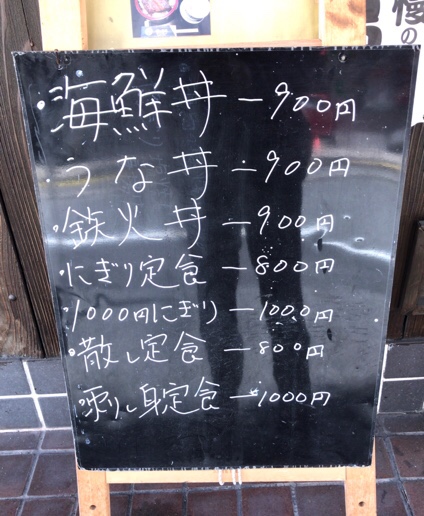 海鮮丼ー900円
うな丼ー900円
鉄火丼ー900円
にぎり定食ー800円
1000円にぎりー1000円
散し定食ー800円
刺し身定食ー1000円
慢の